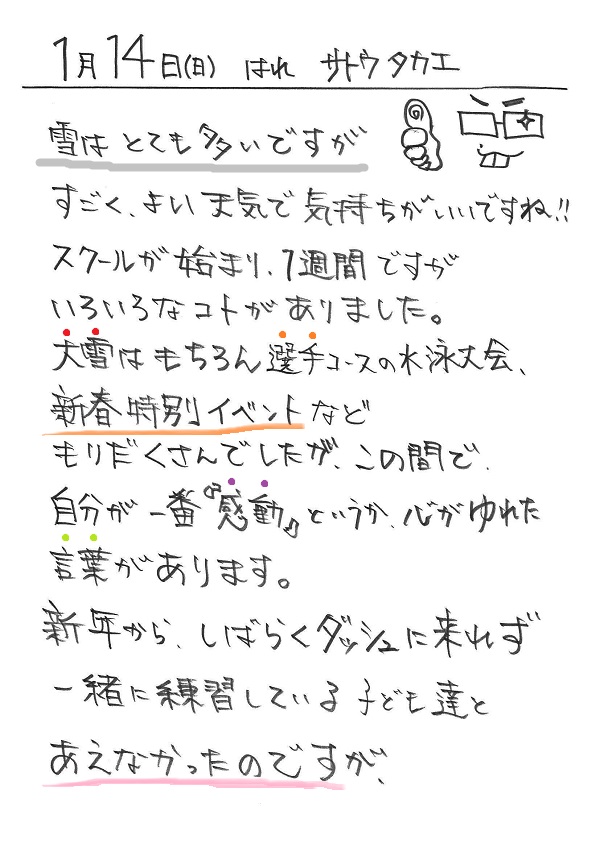 1月14日(日) はれ サトウタカエ
雪は とても多いですが
すごく、よい天気で 気持ちがいいですね!!
スクールが始まり、1週間ですが
いろいろなコトがありました。
大雪はもちろん選手コースの水泳大会、
新春特別イベントなど
もりだくさんでしたが、この間で、
自分が一番『感動』というか、心がゆれた
言葉があります。
新年から、しばらくダッシュに来れず
一緒に練習している子ども達と
あえなかったのですが、